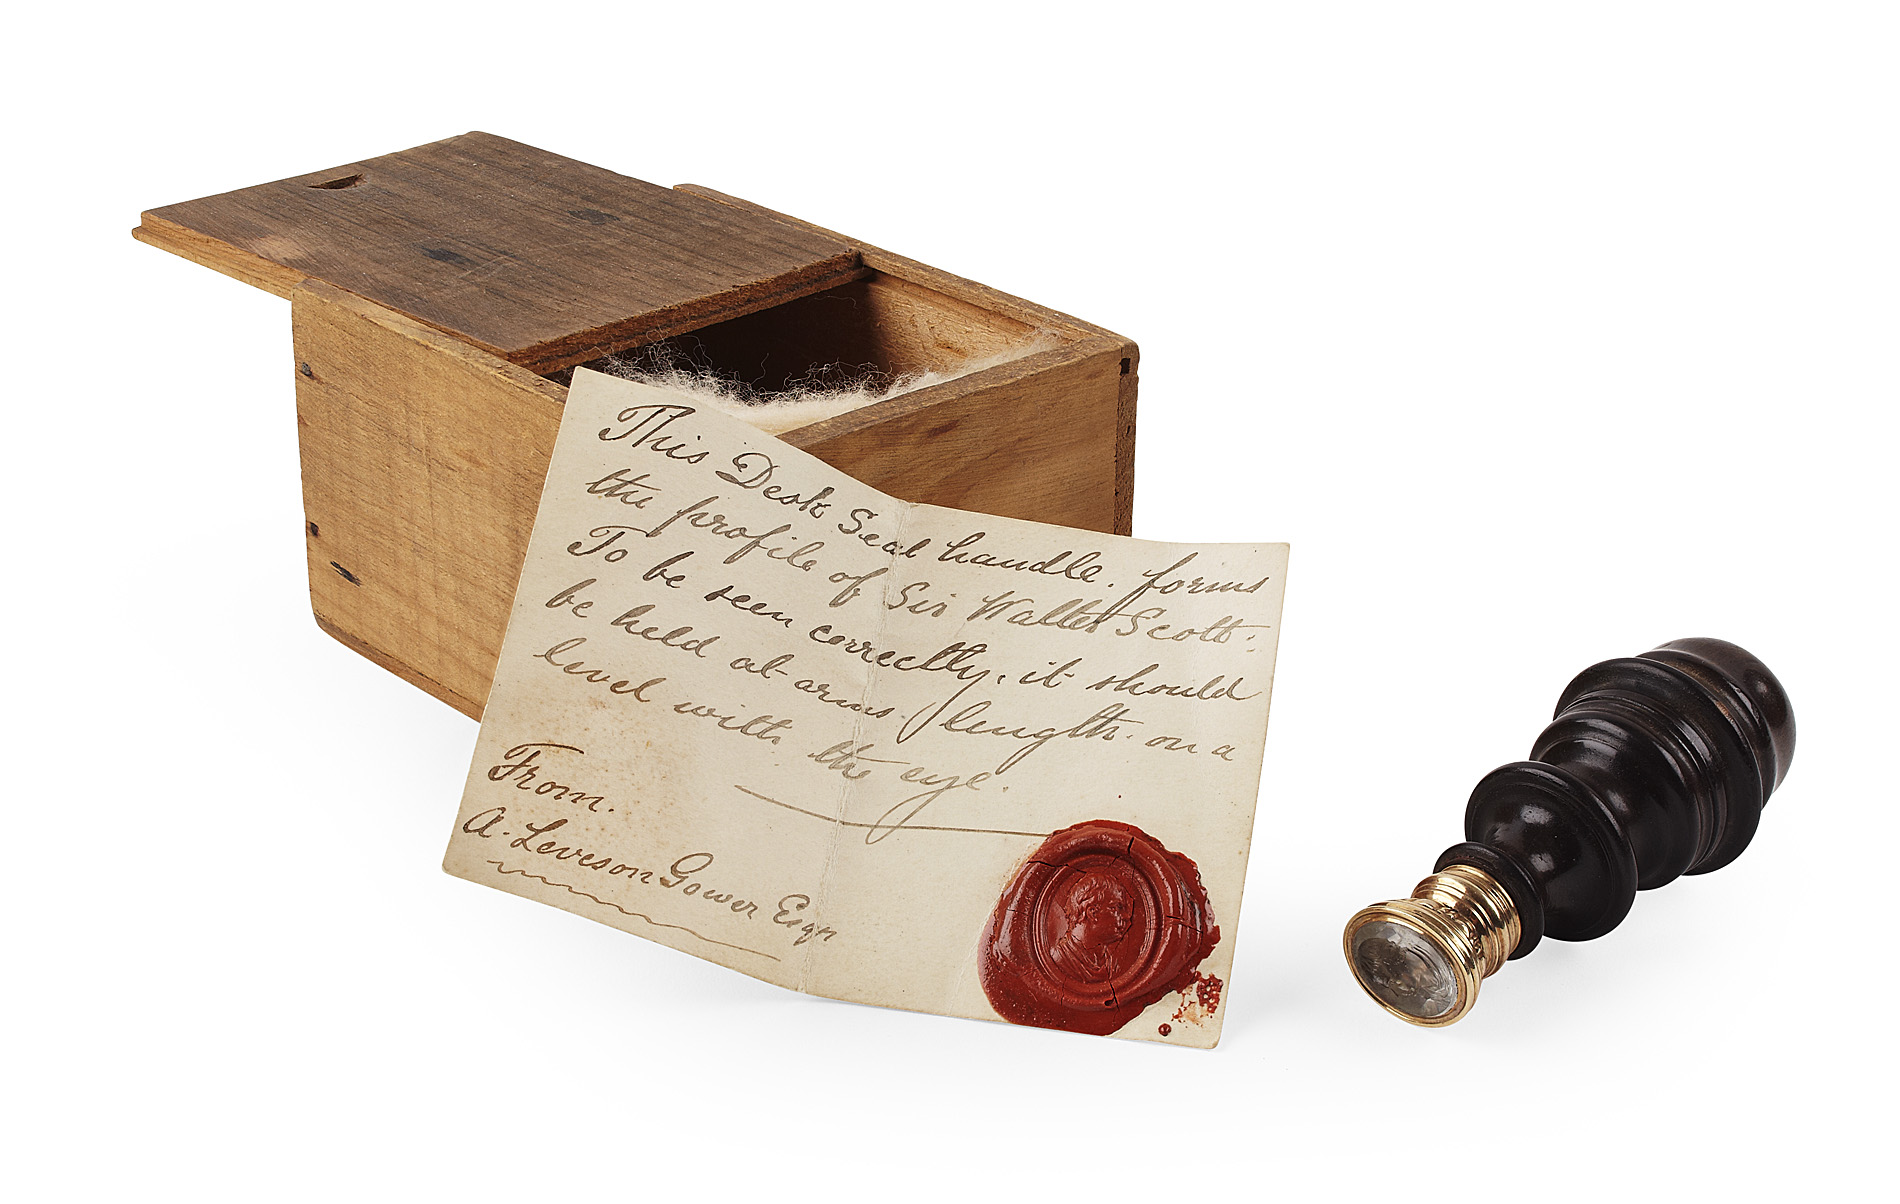 This Desk Seal handle. forms
the profile of Sir Walter Scott.
To be seen correctly, it should
be held at arms. length. on a
level with the eye.
From.
A. Leveson Gower Esqr